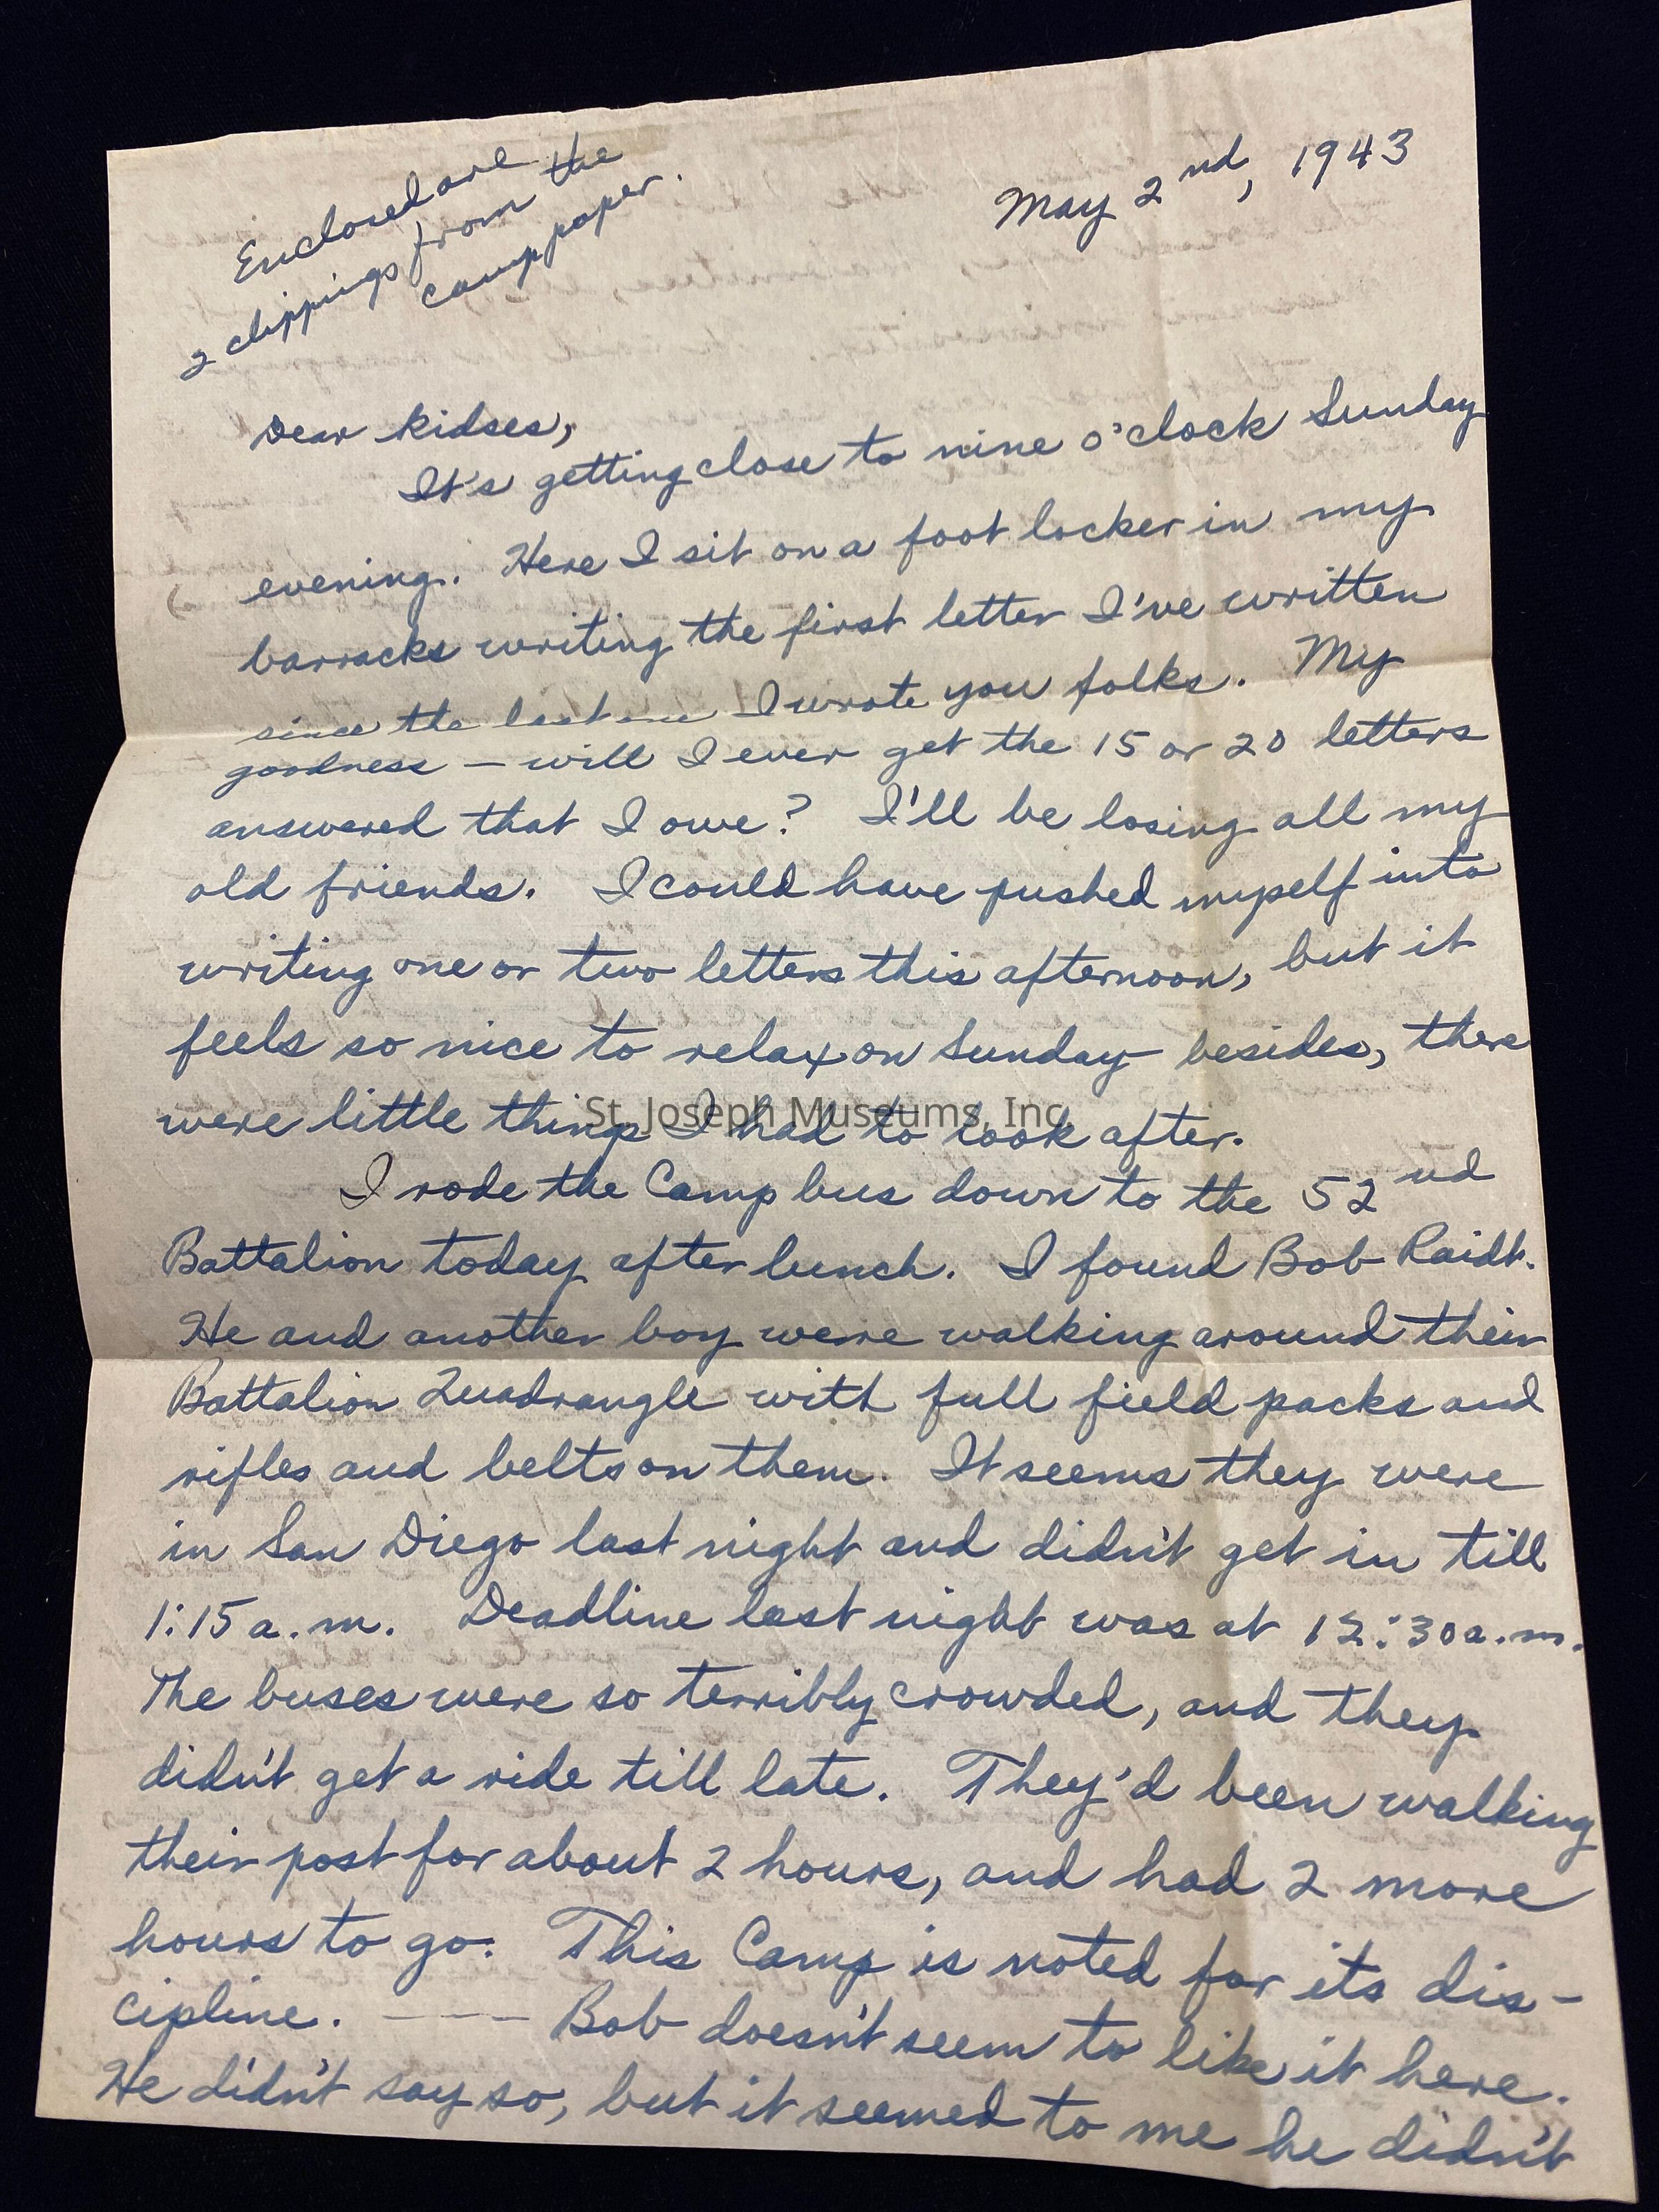 Enclosed are
2 clippings from the
camp paper.
May 2nd, 1943
Dear Kidses,
It's getting close to nine o'clock Sunday
evening. Here I sit on a foot locker in my
barracks writing the first letter I've written
since the last one I wrote you folks. My
goodness — will I ever get the 15 or 20 letters
answered that I owe? I'll be losing all my
old friends. I could have pushed myself into
writing one or two letters this afternoon, but it
feels so nice to relax on Sunday besides, there
were little things I had to look after.
St. Joseph Museums, Inc.
I rode the Camp bus down to the 52nd
Battalion today after lunch. I found Bob Raidt.
He and another boy were walking around their
Battalion Quadrangle with full field packs and
rifles and belts on them. It seems they were
in San Diego last night and didn't get in till
1:15 a.m. Deadline last night was at 12:30 a.m.
The buses were so terribly crowded, and they
didn't get a ride till late. They'd been walking
their post for about 2 hours, and had 2 more
hours to go. This Camp is noted for its dis-
cipline. ---- Bob doesn't seem to like it here.
He didn't say so, but it seemed to me he didn't